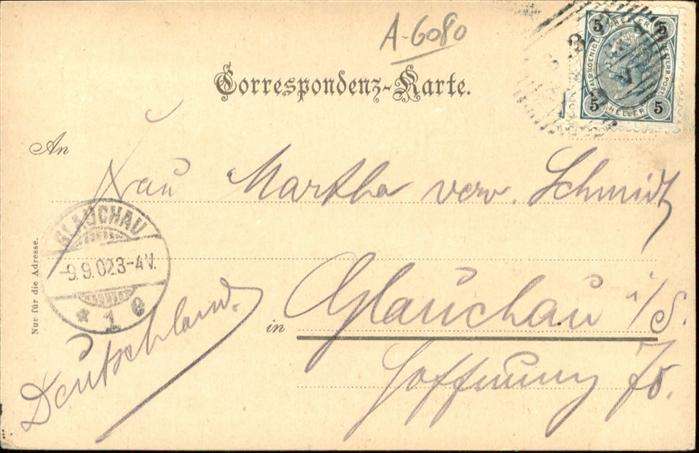 A-6080
Correspondenz-Karte.
5 5
5 HELLER 5
An Frau Martha verw. Schmidt
GLAUCHAU
9.9.02 3-4V.
* 1 e
Nur für die Adresse.
in Glauchau i/S.
Deutschland.
Hoffnung 70.